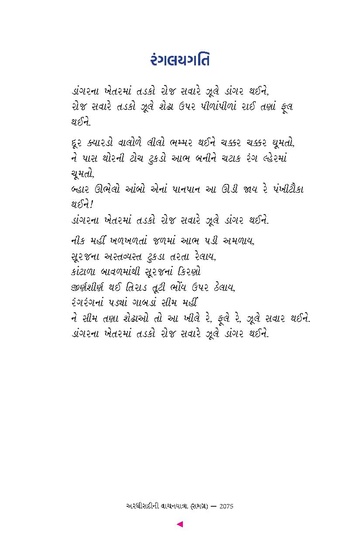 રંગલયગતિ
ડાંગરના ખેતરમાં તડકો રોજ સવારે ઝૂલે ડાંગર થઈને,
રોજ સવારે તડકો ઝૂલે શેઢા ઉપર પીળાંપીળાં રાઈ તણાં ફૂલ
થઈને.
દૂર ક્યારડો વાલોળે લીલો ભમ્મર થઈને ચક્કર ચક્કર ઘૂમતો,
ને પાસ થોરની ટોચ ટુકડો આભ બનીને ચટાક રંગ લ્હેરમાં
ચૂમતો,
બ્હાર ઊભેલો આંબો એનાં પાનપાન આ ઊડી જાય રે પંખીટૌકા
થઈને!
ડાંગરના ખેતરમાં તડકો રોજ સવારે ઝૂલે ડાંગર થઈને.
નીક મહીં ખળખળતાં જળમાં આભ પડી અમળાય,
સૂરજના અસ્તવ્યસ્ત ટુકડા તરતા રેલાય,
કાંટાળા બાવળમાંથી સૂરજનાં કિરણો
જીર્ણશીર્ણ થઈ તિરાડ તૂટી ભોંય ઉપર ઠેલાય,
રંગરંગનાં પડ્યાં ગાબડાં સીમ મહીં
ને સીમ તણા શેઢાઓ તો આ ખીલે રે, ફૂલે રે, ઝૂલે સવાર થઈને.
ડાંગરના ખેતરમાં તડકો રોજ સવારે ઝૂલે ડાંગર થઈને.
અરધીસદીની વાચનયાત્રા (સમગ્ર) — 2075